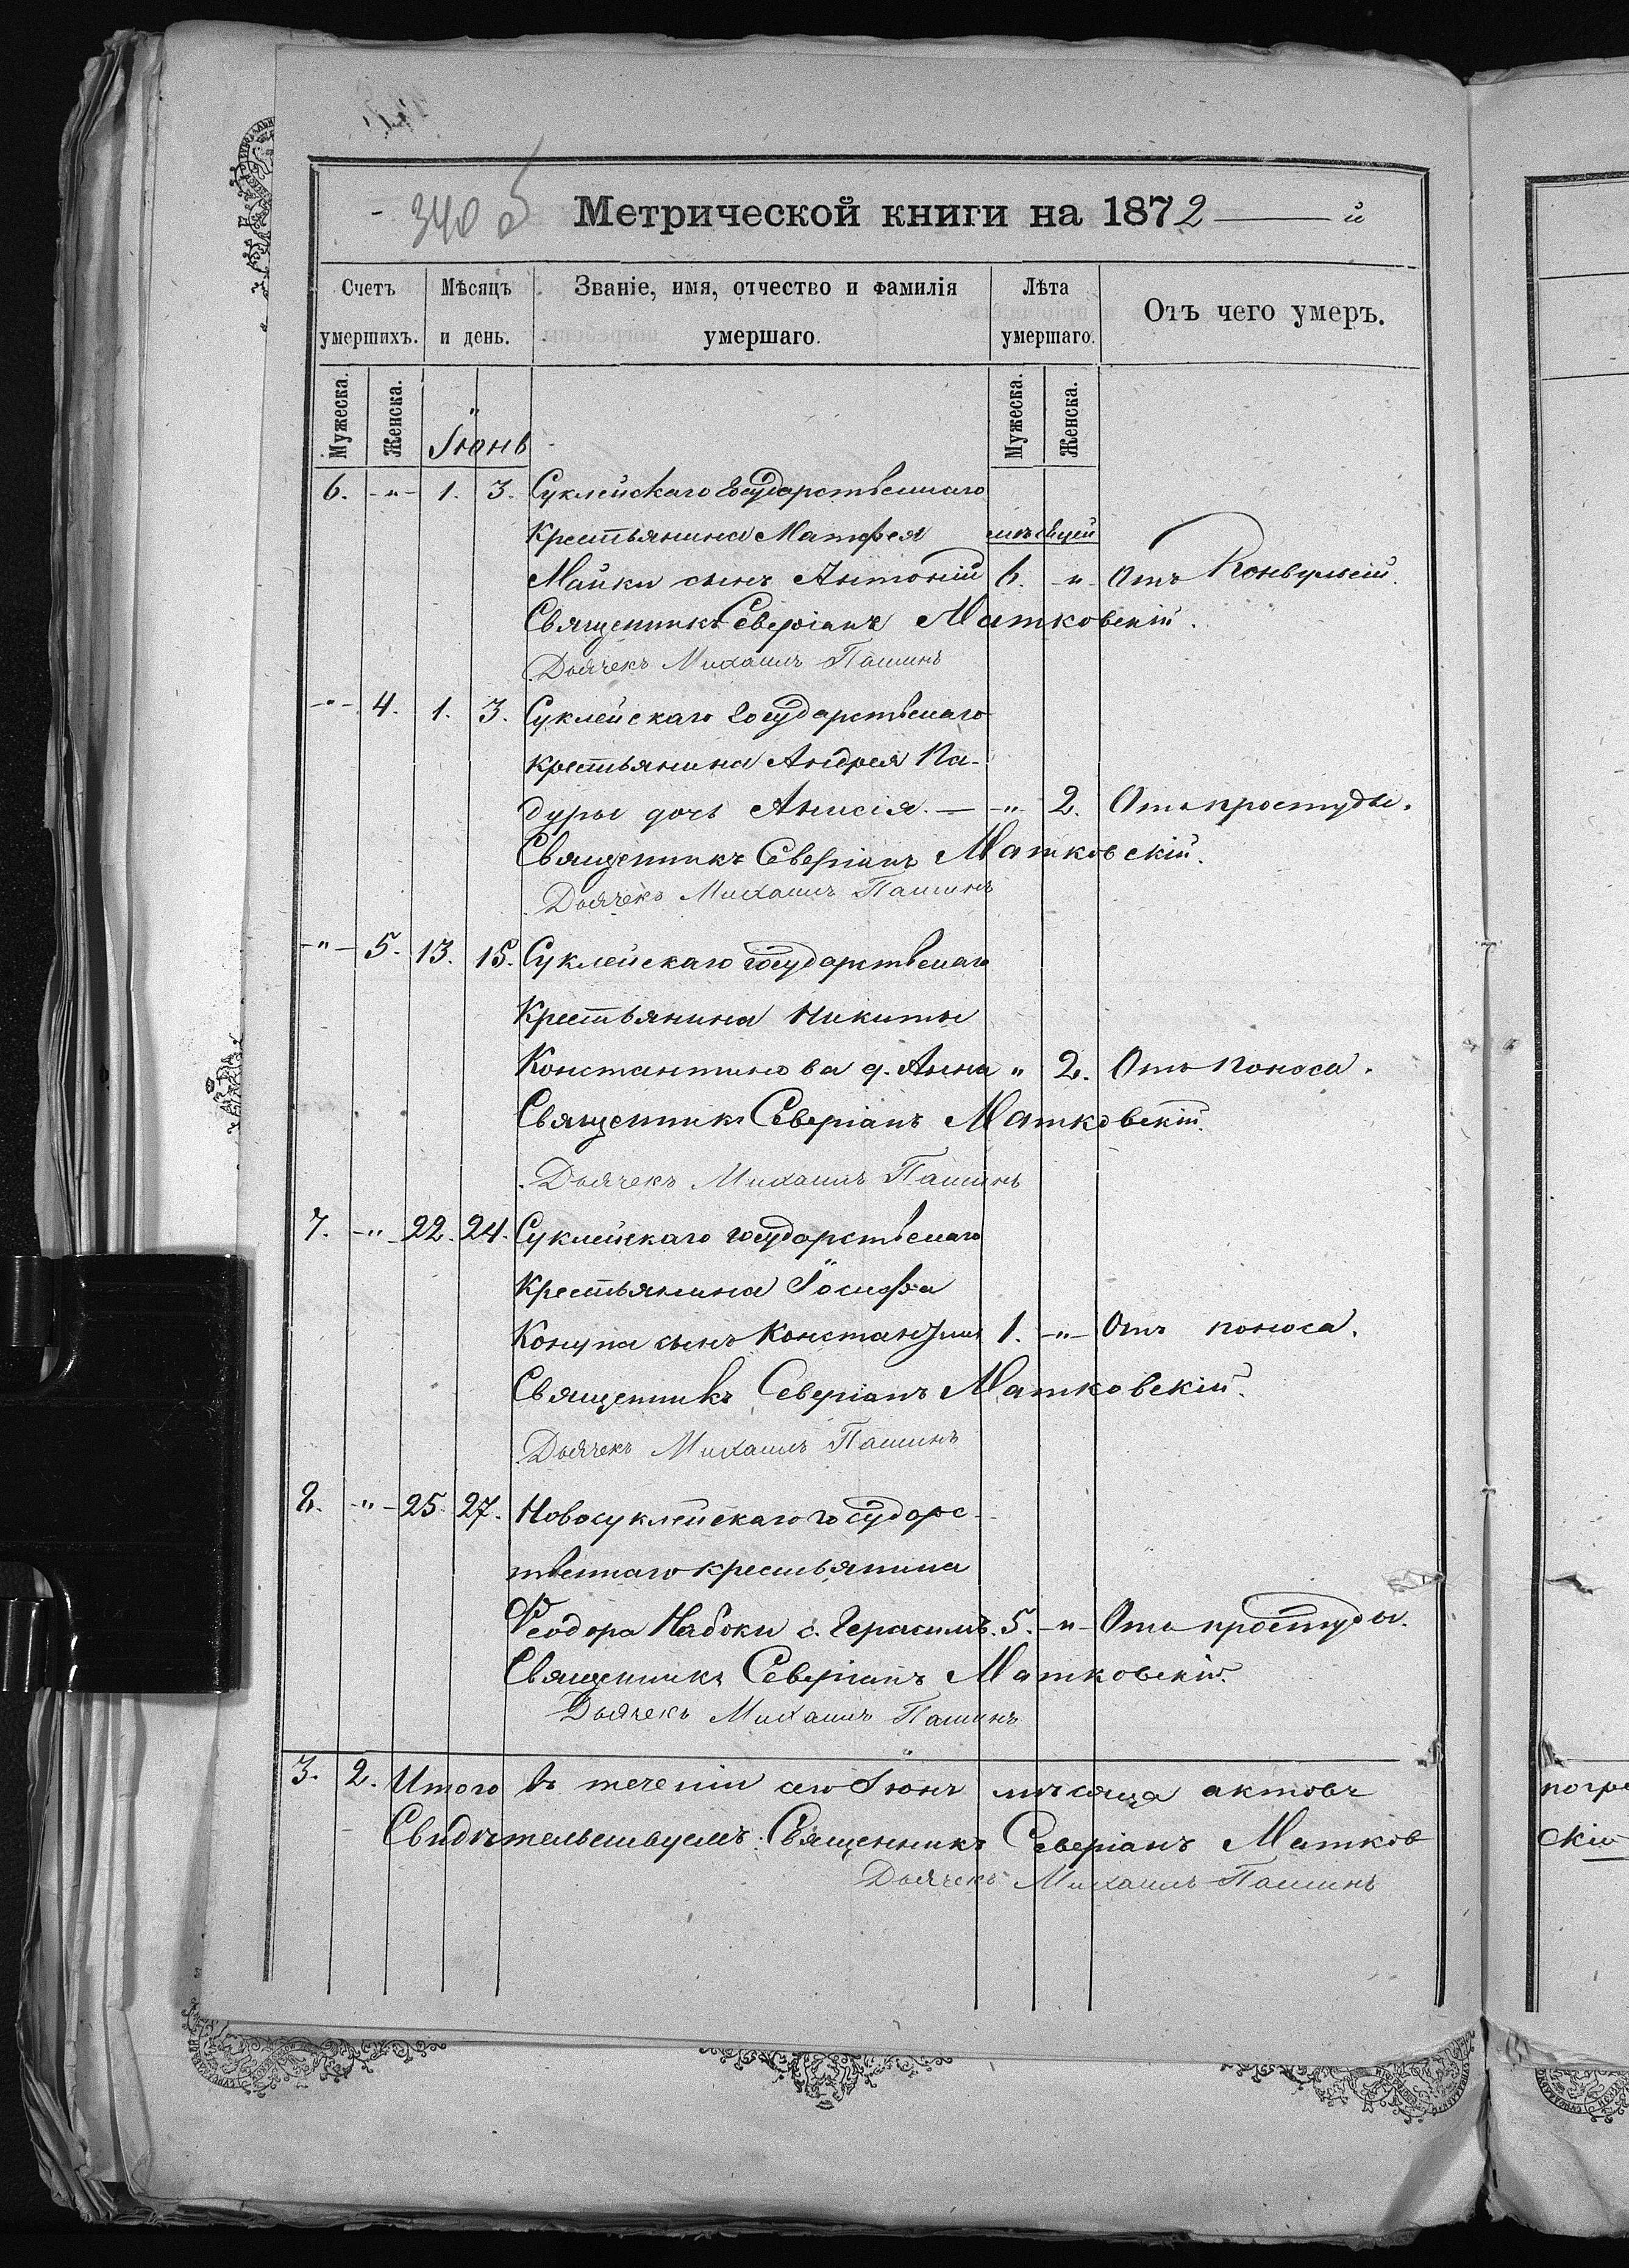 340 об
Метрической книги на 1872 — й
Счетъ умершихъ. Мѣсяцъ и день. Званіе, имя, отчество и фамилія умершаго. Лѣта умершаго. Отъ чего умеръ.
Мужеска. Женска. Мужеска. Женска.
Іюнь
6. -"- 1. 3. Суклейскаго государственнаго
крестьянина Матѳея мѣсяцей
Майки сынъ Антоній 6. -"- Отъ Конвульсій.
Священникъ Северіанъ Матковскій.
Дьячекъ Михаилъ Пашинъ
-"- 4. 1. 3. Суклейскаго государственаго
крестьянина Андрея Па-
дуры дочь Анисія. — -"- 2. Отъ простуды.
Священникъ Северіанъ Матковскій.
Дьячекъ Михаилъ Пашинъ
-"- 5. 13. 15. Суклейскаго государственаго
Крестьянина Никиты
Константинова д. Анна " 2. Отъ поноса.
Священникъ Северіанъ Матковскій.
Дьячекъ Михаилъ Пашинъ
7. -"- 22. 24. Суклейскаго государственаго
крестьянина Іосифа
Конупа сынъ Константинъ 1. -"- Отъ поноса.
Священникъ Северіанъ Матковскій.
Дьячекъ Михаилъ Пашинъ
8. -"- 25. 27. Новосуклейскаго государс-
твеннаго крестьянина
Ѳеодора Набоки с. Герасимъ. 5. -"- Отъ простуды.
Священникъ Северіанъ Матковскій.
Дьячекъ Михаилъ Пашинъ
3. 2. Итого въ теченіи сего Іюнь мѣсяца актовъ
Свидѣтельствуемъ: Священникъ Северіанъ Матков
Дьячекъ Михаилъ Пашинъ
погре
скій